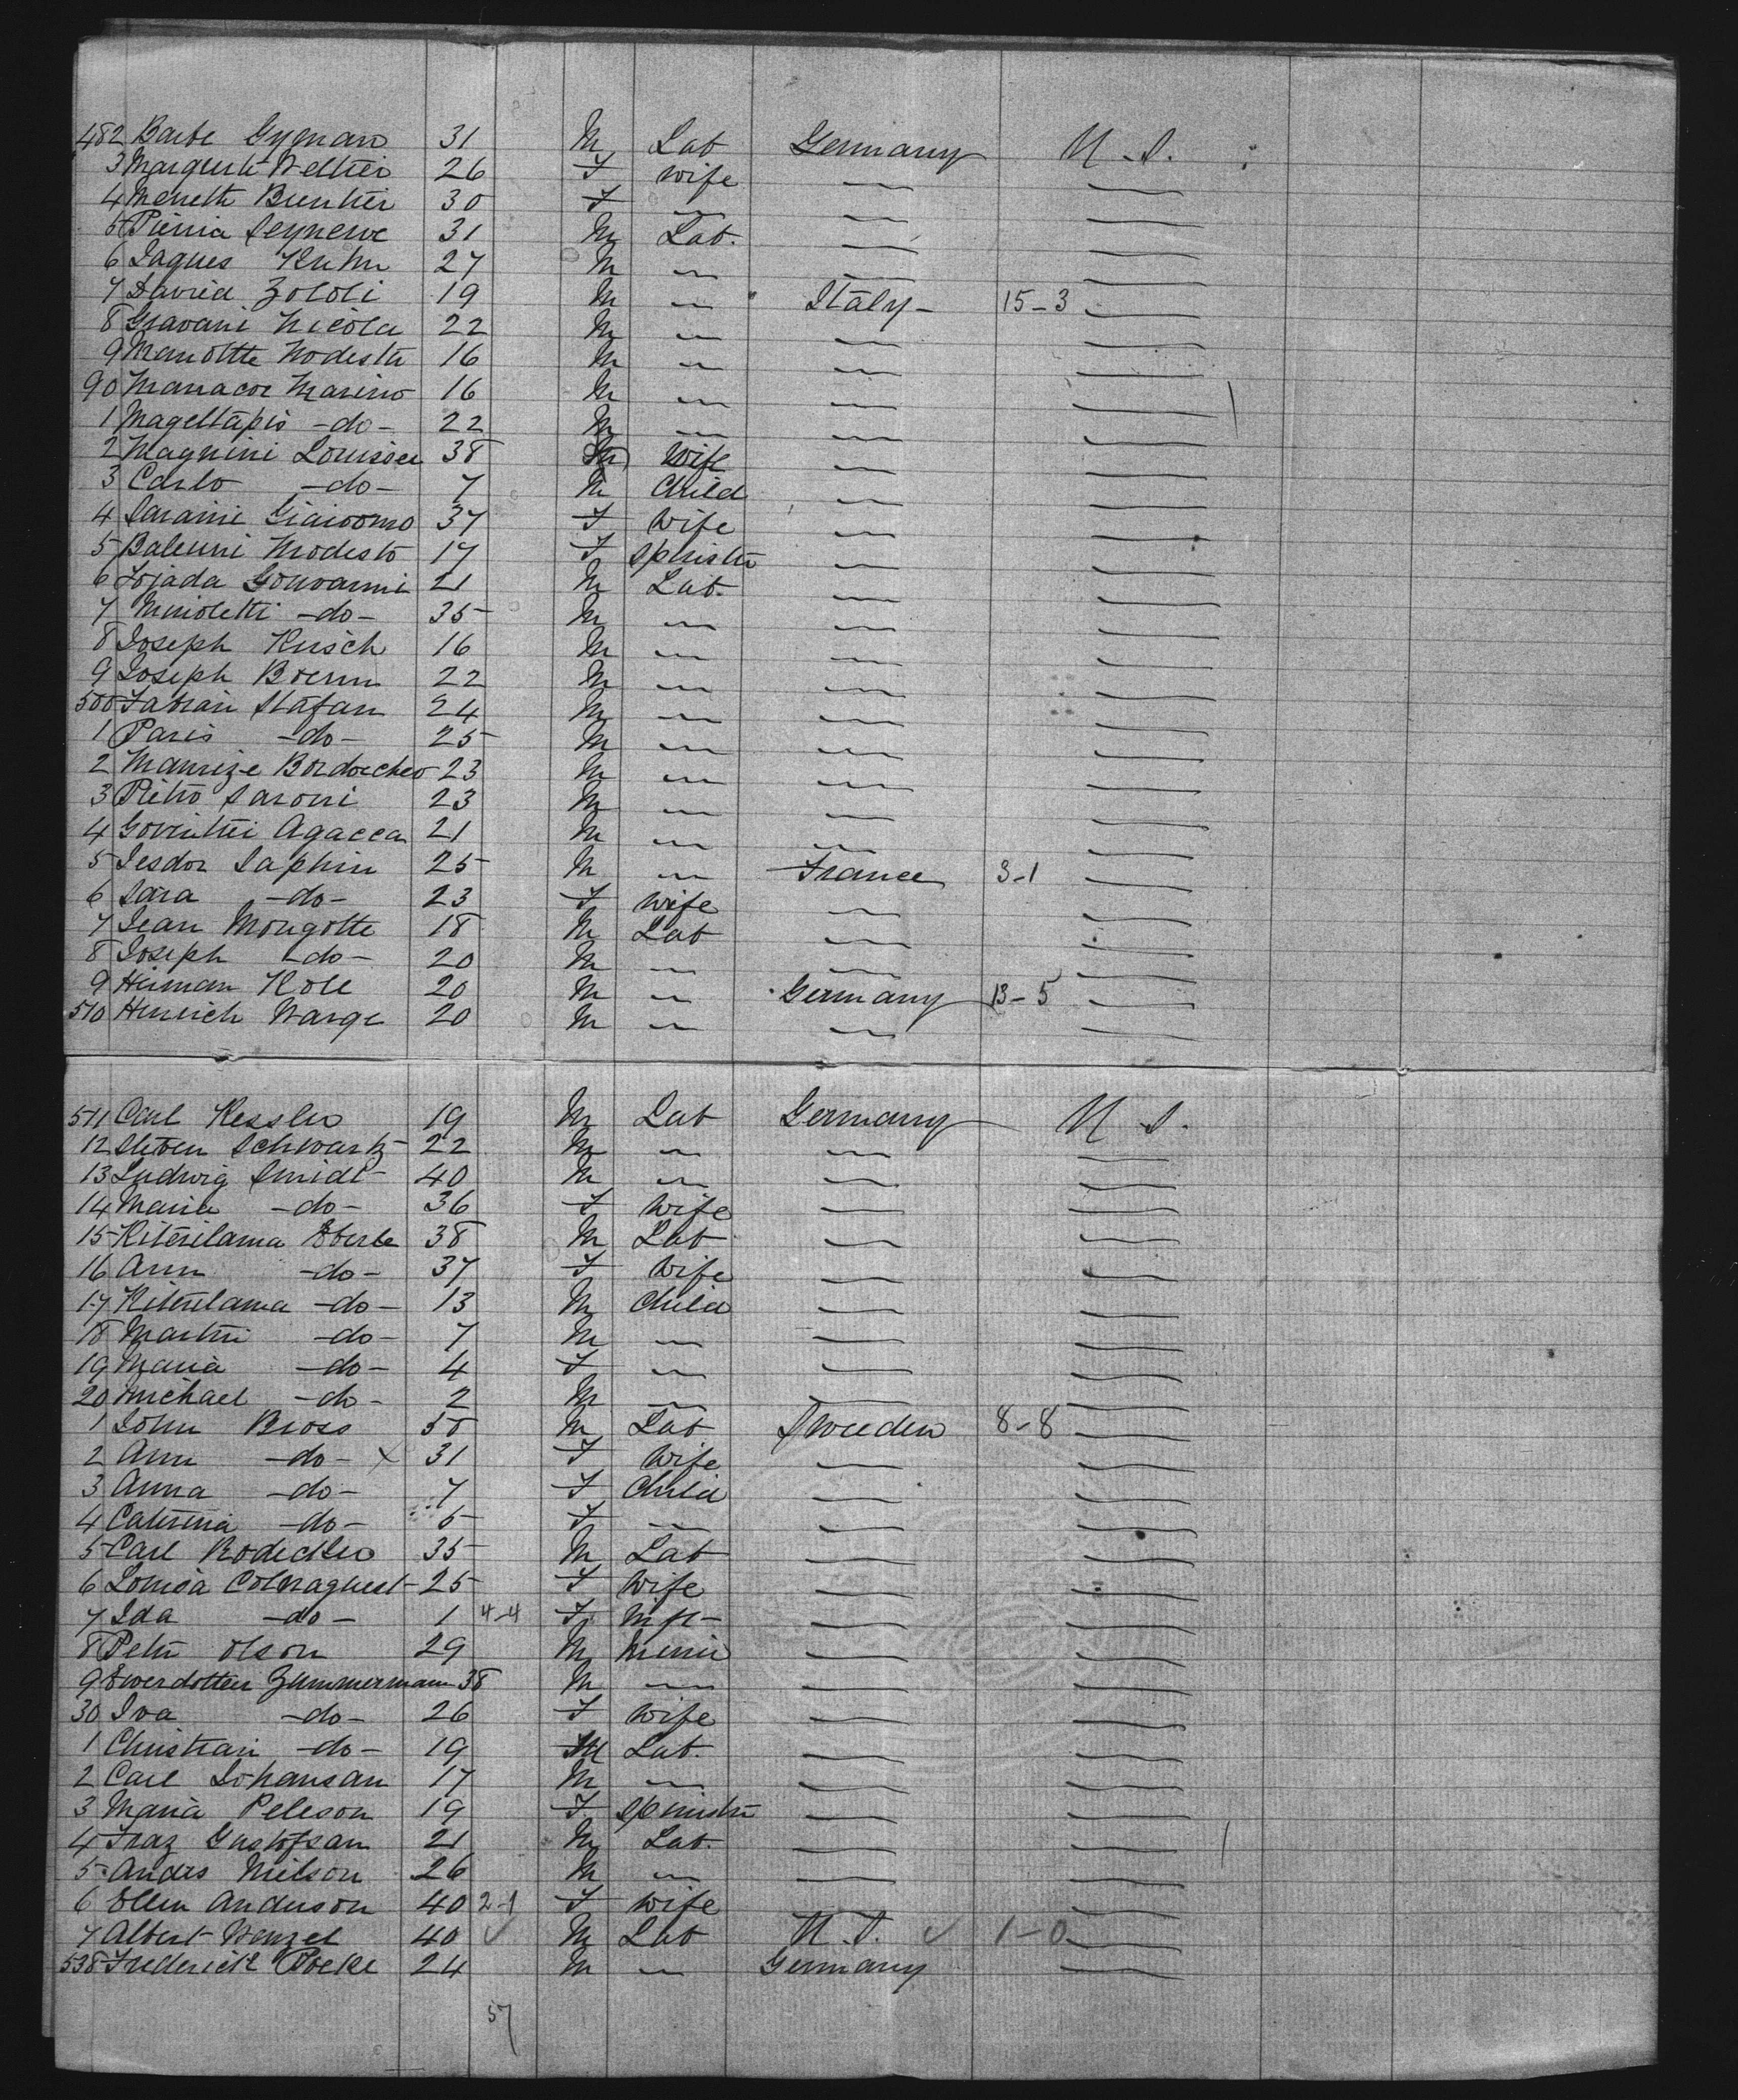 482 Barbe Gyman 31 M Lab Germany U. S.
3 Marguerit Weltier 26 F wife — —
4 Meneth 30 F — — —
5 31 M Lab. — —
6 Jaques Kuhn 27 M — — —
7 David Zololi 19 M — Italy — 15-3 —
8 Giavani Nicola 22 M — — —
9 Modesta 16 M — — —
90 Manacor Marino 16 M — — —
1 Magettapis -do- 22 M — — —
2 Magnini Louisa 38 wife — —
3 Carlo -do- 7 M Child — —
4 Saraini Giaicomo 37 F Wife — —
5 Baleuni Modesto 17 F — —
6 Jojada Gouvanni 21 M Lab. — —
7 Minoletti -do- 35 M — — —
8 Joseph Kusich 16 M — — —
9 Joseph Boerm 22 M — — —
500 Fabian Stafan 24 M — — —
1 Paris -do- 25 M — — —
2 Maurize Bordocheo 23 M — — —
3 Pietro Saroni 23 M — — —
4 Agacca 21 M — — —
5 Jesdor Saphin 25 M — France 3-1 —
6 Sara -do- 23 F wife — —
7 Jean Mongotte 18 M Lab — —
8 Joseph -do- 20 M — — —
9 Herman Kole 20 M — Germany 13-5 —
510 Henrich Warge 20 M — — —
511 Carl Kessler 19 M Lab Germany U. S.
12 Steven Schwartz 22 M — — —
13 Ludwig Smidt 40 M — — —
14 Maria -do- 36 F wife — —
15 Kiterilama Eberle 38 M Lab — —
16 Ann -do- 37 F Wife — —
17 Kiterilama -do- 13 M Child — —
18 Martin -do- 7 M — — —
19 Maria -do- 4 F — — —
20 Michael -do- 2 M — — —
1 John Bross 38 M Lab Sweeden 8-8 —
2 Ann -do- x 31 F Wife — —
3 Anna -do- 7 F Child — —
4 Caterina -do- 5 F — — —
5 Carl 35 M Lab — —
6 Louisa Colnaquest 25 F Wife — —
7 Ida -do- 1 4-4 F — —
8 Peter Olson 29 M Miner — —
9 Ewerdotter Zummermann 38 M — — —
30 Iva -do- 26 F Wife — —
1 Christian -do- 19 M Lab. — —
2 Carl Johansan 17 M — — —
3 Maria Peleson 19 F spinster — —
4 Fraz Gustofsan 21 M Lab. — —
5 Andrs Nielson 26 M — — —
6 Ellen Anderson 40 2-1 F wife — —
7 Albert Wenzel 40 ✓ M Lab U. S. ✓ 1-0 —
538 Frederick Poeke 24 M — Germany —
57